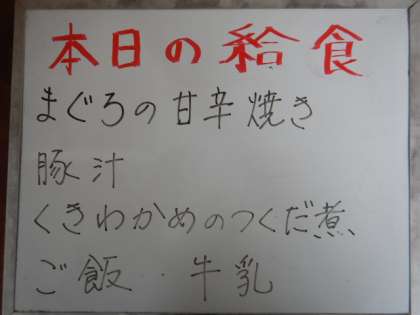 本日の給食
まぐろの甘辛焼き
豚汁
くきわかめのつくだ煮
ご飯・牛乳